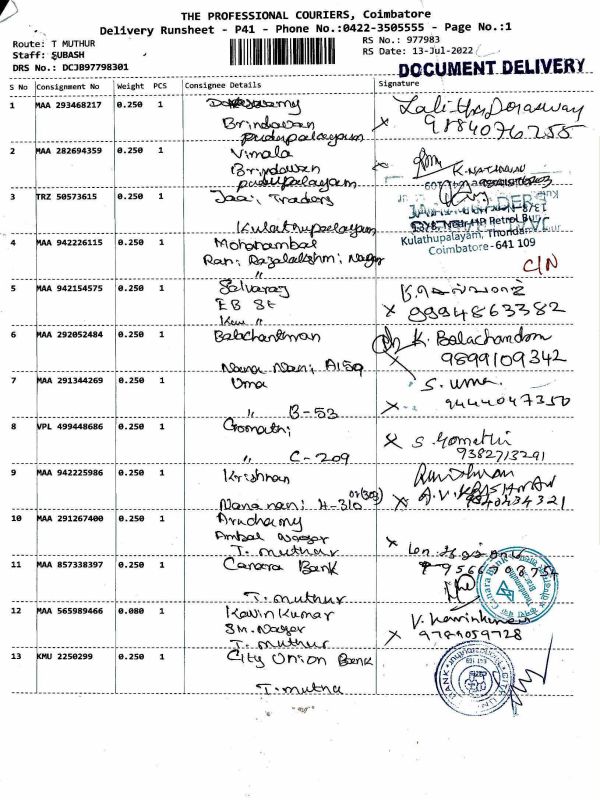 THE PROFESSIONAL COURIERS, Coimbatore
Delivery Runsheet - P41 - Phone No.:0422-3505555 - Page No.:1
Route: T MUTHUR
RS No.: 977983
Staff: SUBASH
RS Date: 13-Jul-2022
DRS No.: DCJB97798301
DOCUMENT DELIVERY
S No Consignment No Weight PCS Consignee Details Signature
1 MAA 293468217 0.250 1
Brindavan
pudupalayam
9184076255
2 MAA 282694359 0.250 1 Vimala
Brindavan
pudupalayam
3 TRZ 50573615 0.250 1 Jaai Traders
Kulathupalayam
Kulathupalayam, Thondamuthur
Coimbatore-641 109
4 MAA 942226115 0.250 1 Mohanambal
Rani Rajalakshmi Nagar
"
C/N
5 MAA 942154575 0.250 1 Selvaraj
EB St
x 9994863382
6 MAA 292052484 0.250 1 Balachandran K. Balachandran
Nana Nani A159 9899109342
7 MAA 291344269 0.250 1 Uma S. Uma
" B-53 9444047350
8 VPL 499448686 0.250 1 Gomathi S. Gomathi
" C-209 9382713291
9 MAA 942225986 0.250 1 Krishnan
Nana nani H-310 or (303)
9840434321
10 MAA 291267400 0.250 1
Ambal Nagar
T. muthur
11 MAA 857338397 0.250 1 Canara Bank
T. muthur
12 MAA 565989466 0.080 1 Kavin Kumar
SM. Nagar
T. muthur x 9789059728
13 KMU 2250299 0.250 1 City Union Bank
T. muthu